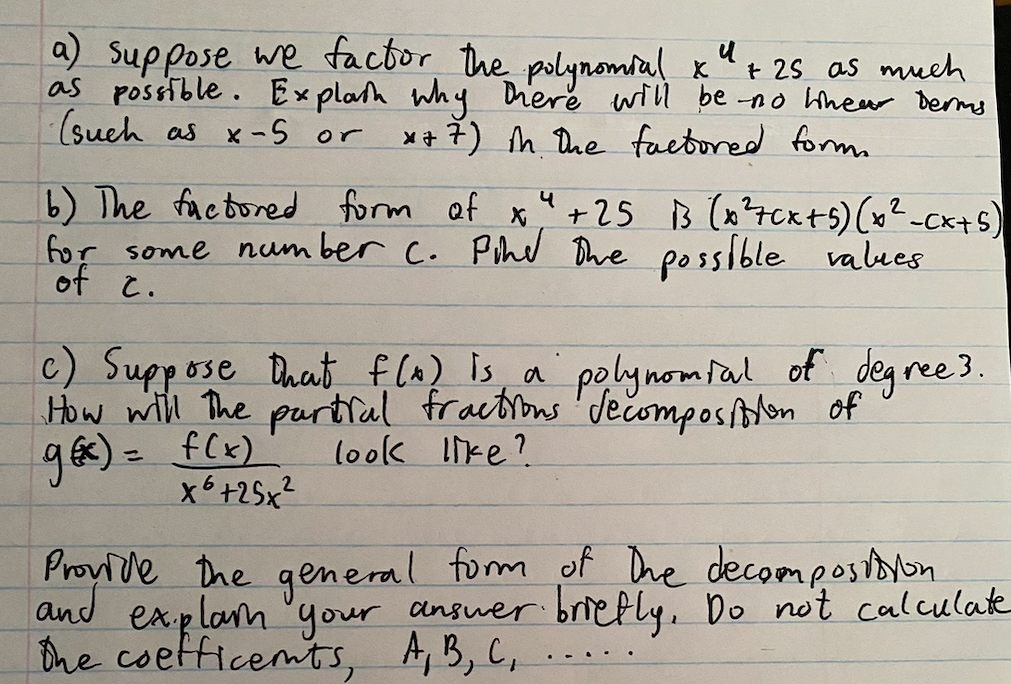 a) Suppose we factor the polynomial x⁴ + 25 as much
as possible. Explain why there will be no linear terms
(such as x-5 or x+7) in the factored form.
b) The factored form of x⁴ + 25 is (x²+cx+5)(x²-cx+5)
for some number c. Find the possible values
of c.
c) Suppose that f(x) is a polynomial of degree 3.
How will the partial fractions decomposition of
g(x) = f(x)/(x⁶+25x²) look like?
Provide the general form of the decomposition
and explain your answer briefly. Do not calculate
the coefficemts, A, B, C, .....